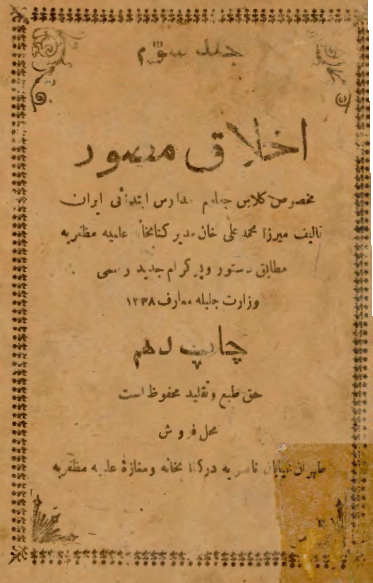 جلد سوم
اخلاق مصور
مخصوص کلاس چهارم مدارس ابتدائی ایران
تالیف میرزا محمد علی خان مدیر کتابخانه علمیه مظفریه
مطابق دستور و پرگرام جدید رسمی
وزارت جلیله معارف ۱۳۳۸
چاپ دهم
حق طبع و تقلید محفوظ است
محل فروش
طهران خیابان ناصریه در کتابخانه و مغازه علمیه مظفریه